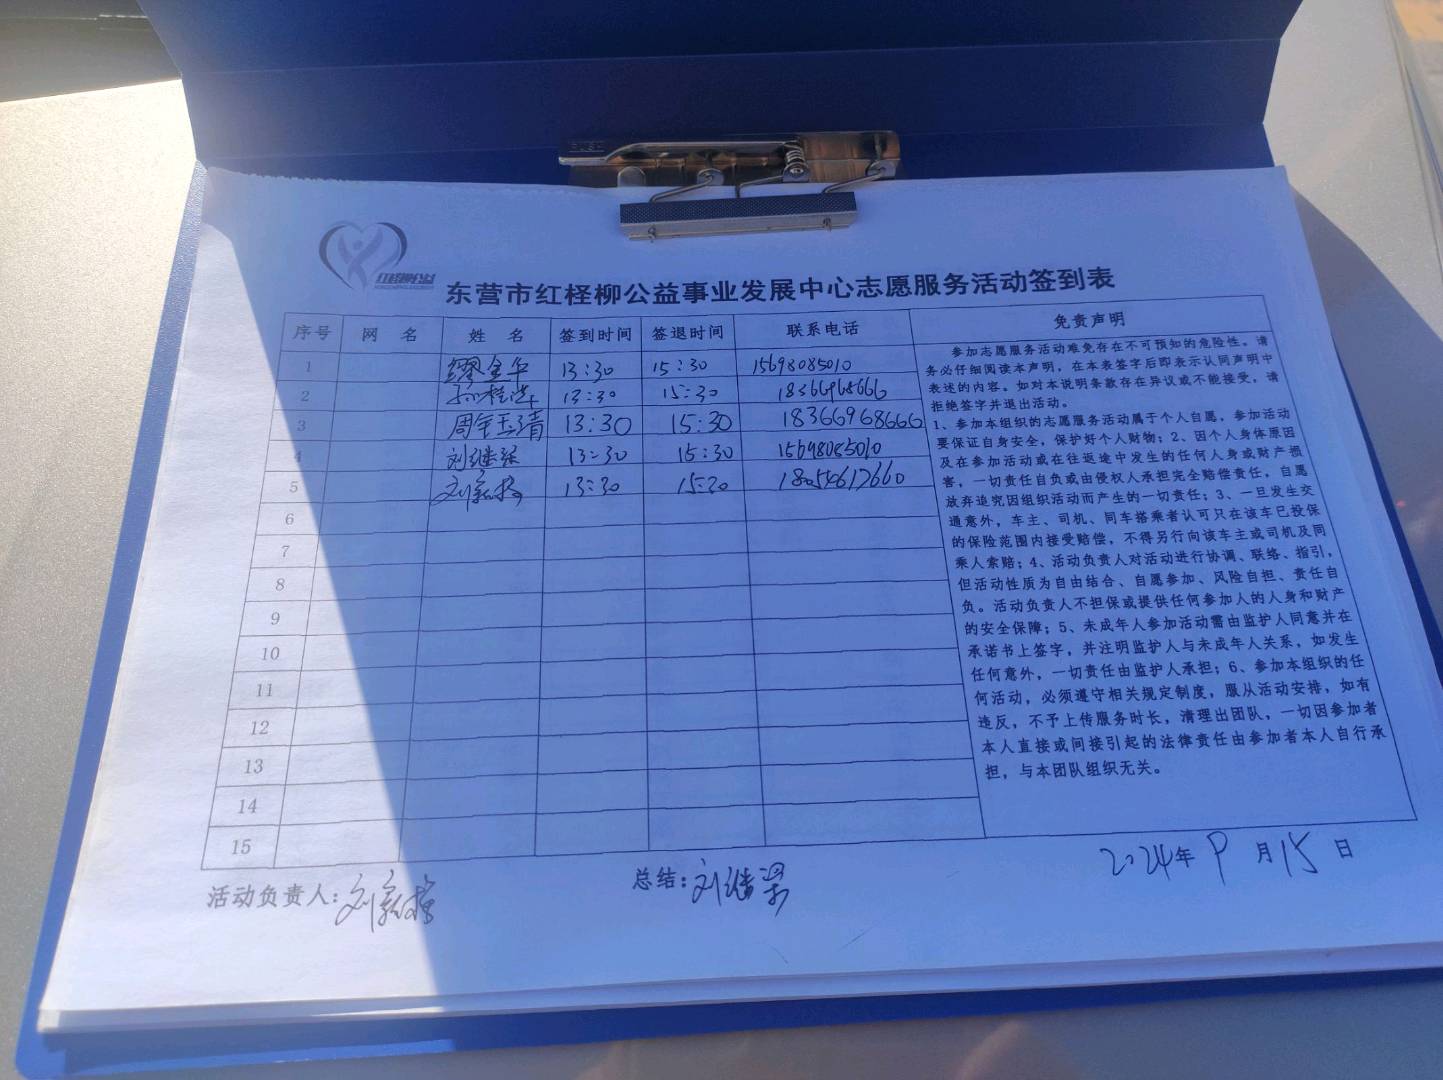 PUSH
红柽柳公益
东营市红柽柳公益事业发展中心志愿服务活动签到表
序号 网 名 姓 名 签到时间 签退时间 联系电话 免责声明
1 金华 13:30 15:30 15698085010
2 13:30 15:30 18366968666
3 周 玉清 13:30 15:30 18366968666
4 刘继 13:30 15:30 15698085010
5 刘 13:30 15:30 18054617660
6
7
8
9
10
11
12
13
14
15
参加志愿服务活动难免存在不可预知的危险性。请
务必仔细阅读本声明，在本表签字后即表示认同声明中
表述的内容。如对本说明条款存在异议或不能接受，请
拒绝签字并退出活动。
1、参加本组织的志愿服务活动属于个人自愿，参加活动
要保证自身安全，保护好个人财物；2、因个人身体原因
及在参加活动或在往返途中发生的任何人身或财产损
害，一切责任自负或由侵权人承担完全赔偿责任，自愿
放弃追究因组织活动而产生的一切责任；3、一旦发生交
通意外，车主、司机、同车搭乘者认可只在该车已投保
的保险范围内接受赔偿，不得另行向该车主或司机及同
乘人索赔；4、活动负责人对活动进行协调、联络、指引，
但活动性质为自由结合、自愿参加、风险自担、责任自
负。活动负责人不担保或提供任何参加人的人身和财产
的安全保障；5、未成年人参加活动需由监护人同意并在
承诺书上签字，并注明监护人与未成年人关系，如发生
任何意外，一切责任由监护人承担；6、参加本组织的任
何活动，必须遵守相关规定制度，服从活动安排，如有
违反，不予上传服务时长，清理出团队，一切因参加者
本人直接或间接引起的法律责任由参加者本人自行承
担，与本团队组织无关。
活动负责人：刘 总结：刘继梁 2024年9月15日